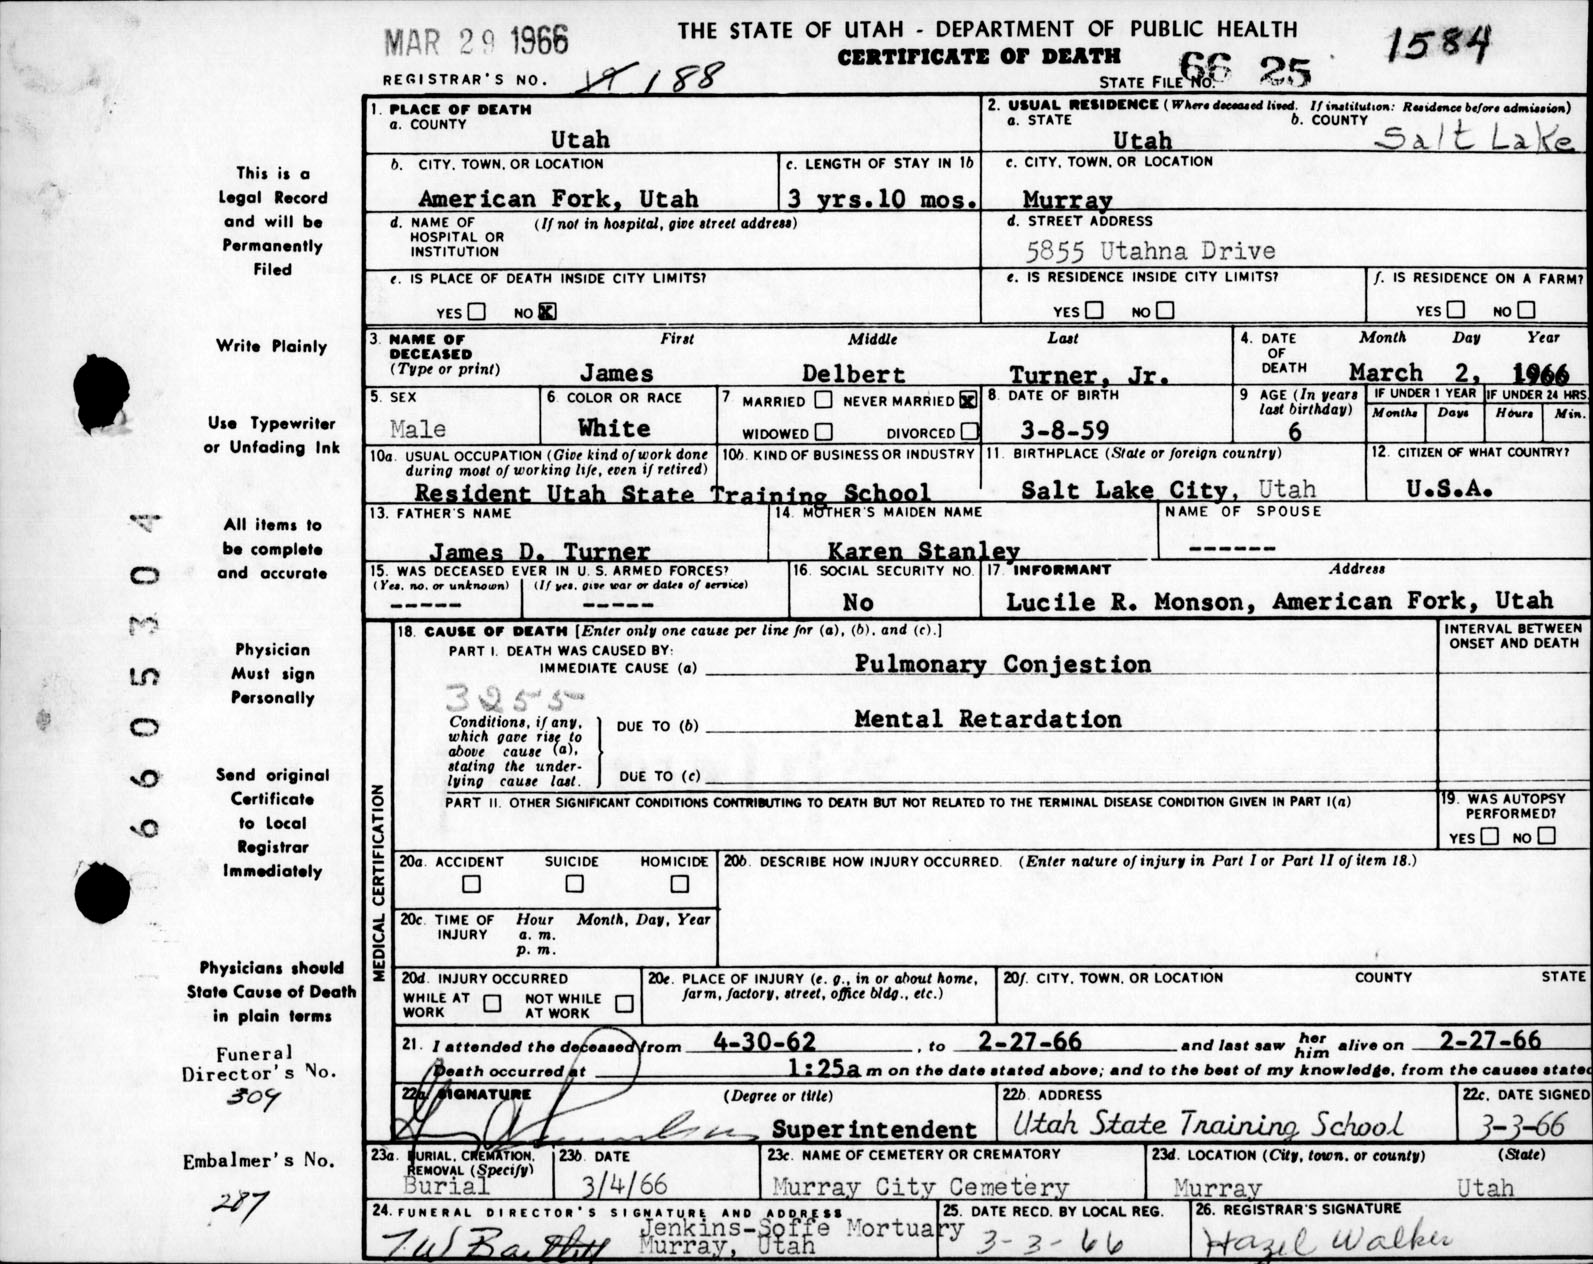 MAR 29 1966
THE STATE OF UTAH - DEPARTMENT OF PUBLIC HEALTH
CERTIFICATE OF DEATH
1584
REGISTRAR'S NO. 188
STATE FILE NO. 66 25
This is a
Legal Record
and will be
Permanently
Filed
Write Plainly
Use Typewriter
or Unfading Ink
All items to
be complete
and accurate
Physician
Must sign
Personally
Send original
Certificate
to Local
Registrar
Immediately
Physicians should
State Cause of Death
in plain terms
Funeral
Director's No.
309
Embalmer's No.
287
6605304
1. PLACE OF DEATH
a. COUNTY
Utah
2. USUAL RESIDENCE (Where deceased lived. If institution: Residence before admission)
a. STATE b. COUNTY
Utah Salt Lake
b. CITY, TOWN, OR LOCATION
American Fork, Utah
c. LENGTH OF STAY IN 1b
3 yrs.10 mos.
c. CITY, TOWN, OR LOCATION
Murray
d. NAME OF (If not in hospital, give street address)
HOSPITAL OR
INSTITUTION
d. STREET ADDRESS
5855 Utahna Drive
e. IS PLACE OF DEATH INSIDE CITY LIMITS?
YES NO X
e. IS RESIDENCE INSIDE CITY LIMITS?
YES NO
f. IS RESIDENCE ON A FARM?
YES NO
3. NAME OF First Middle Last
DECEASED
(Type or print) James Delbert Turner, Jr.
4. DATE Month Day Year
OF
DEATH March 2, 1966
5. SEX
Male
6. COLOR OR RACE
White
7 MARRIED NEVER MARRIED X
WIDOWED DIVORCED
8. DATE OF BIRTH
3-8-59
9 AGE (In years
last birthday)
6
IF UNDER 1 YEAR IF UNDER 24 HRS.
Months Days Hours Min.
10a. USUAL OCCUPATION (Give kind of work done
during most of working life, even if retired)
10b. KIND OF BUSINESS OR INDUSTRY
Resident Utah State Training School
11. BIRTHPLACE (State or foreign country)
Salt Lake City, Utah
12. CITIZEN OF WHAT COUNTRY?
U.S.A.
13. FATHER'S NAME
James D. Turner
14. MOTHER'S MAIDEN NAME
Karen Stanley
NAME OF SPOUSE
------
15. WAS DECEASED EVER IN U. S. ARMED FORCES?
(Yes, no, or unknown) (If yes, give war or dates of service)
----- -----
16. SOCIAL SECURITY NO.
No
17. INFORMANT Address
Lucile R. Monson, American Fork, Utah
MEDICAL CERTIFICATION
18. CAUSE OF DEATH [Enter only one cause per line for (a), (b), and (c).]
INTERVAL BETWEEN
ONSET AND DEATH
PART I. DEATH WAS CAUSED BY:
IMMEDIATE CAUSE (a) Pulmonary Conjestion
3255
Conditions, if any,
which gave rise to
above cause (a),
stating the under-
lying cause last.
DUE TO (b) Mental Retardation
DUE TO (c)
PART II. OTHER SIGNIFICANT CONDITIONS CONTRIBUTING TO DEATH BUT NOT RELATED TO THE TERMINAL DISEASE CONDITION GIVEN IN PART I(a)
19. WAS AUTOPSY
PERFORMED?
YES NO
20a. ACCIDENT SUICIDE HOMICIDE
20b. DESCRIBE HOW INJURY OCCURRED. (Enter nature of injury in Part I or Part II of item 18.)
20c. TIME OF Hour Month, Day, Year
INJURY a. m.
p. m.
20d. INJURY OCCURRED
WHILE AT NOT WHILE
WORK AT WORK
20e. PLACE OF INJURY (e. g., in or about home,
farm, factory, street, office bldg., etc.)
20f. CITY, TOWN, OR LOCATION COUNTY STATE
21. I attended the deceased from 4-30-62, to 2-27-66 and last saw her him alive on 2-27-66
Death occurred at 1:25a m on the date stated above; and to the best of my knowledge, from the causes stated
22a. SIGNATURE (Degree or title)
Superintendent
22b. ADDRESS
Utah State Training School
22c. DATE SIGNED
3-3-66
23a. BURIAL, CREMATION,
REMOVAL (Specify)
Burial
23b. DATE
3/4/66
23c. NAME OF CEMETERY OR CREMATORY
Murray City Cemetery
23d. LOCATION (City, town, or county) (State)
Murray Utah
24. FUNERAL DIRECTOR'S SIGNATURE AND ADDRESS
Jenkins-Soffe Mortuary
Murray, Utah
25. DATE RECD. BY LOCAL REG.
3-3-66
26. REGISTRAR'S SIGNATURE
Hazel Walker